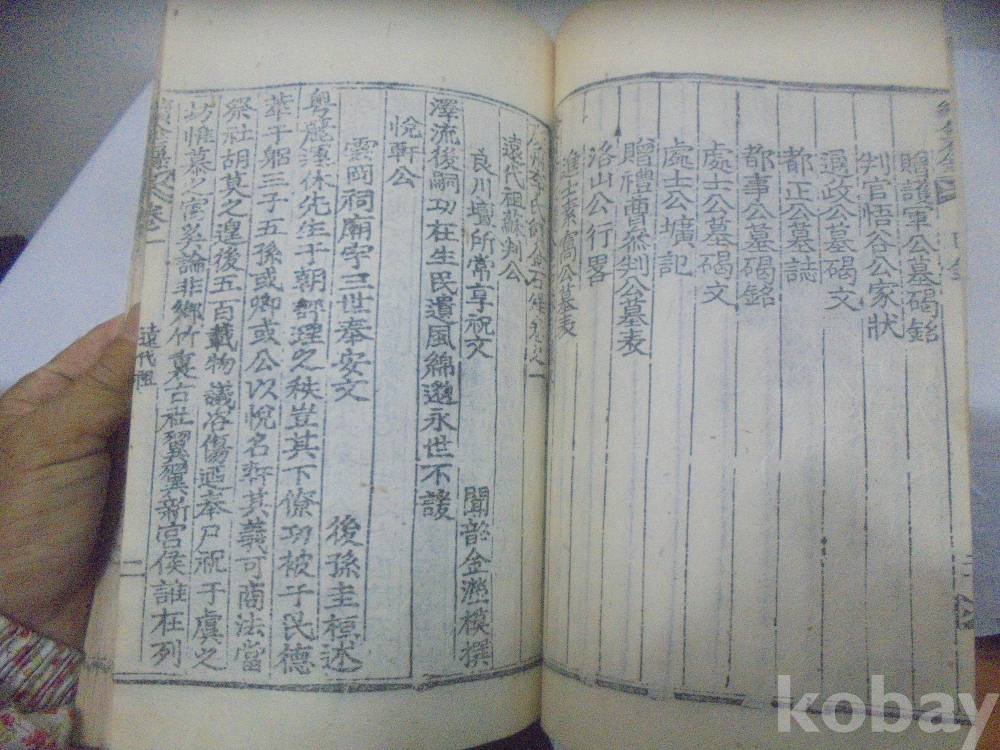 贈護軍公墓碣銘
判官悟谷公家狀
通政公墓碣文
都正公墓誌
都事公墓碣銘
處士公墓碣文
處士公壙記
贈禮曹參判公墓表
洛山公行畧
進士素窩公墓表
遠代祖蘇判公
良川壇所常享祝文
聞韶金
模撰
澤流後嗣功在生民遺風綿邈永世不諼
悅軒公
雲岡祠廟宇三世奉安文
後孫圭桓述
粤麗運休先生于朝經理之秩豈其下僚功被于民德
萃于躬三子五孫或卿或公以悅名軒其義可商法當
祭社胡莫之遑後五百載物議咨傷迺奉尸祝于虞之
坊惟慕之寓奚論非鄉竹裏古社翼翼新宮侯誰在列
遠代祖
二
kobay